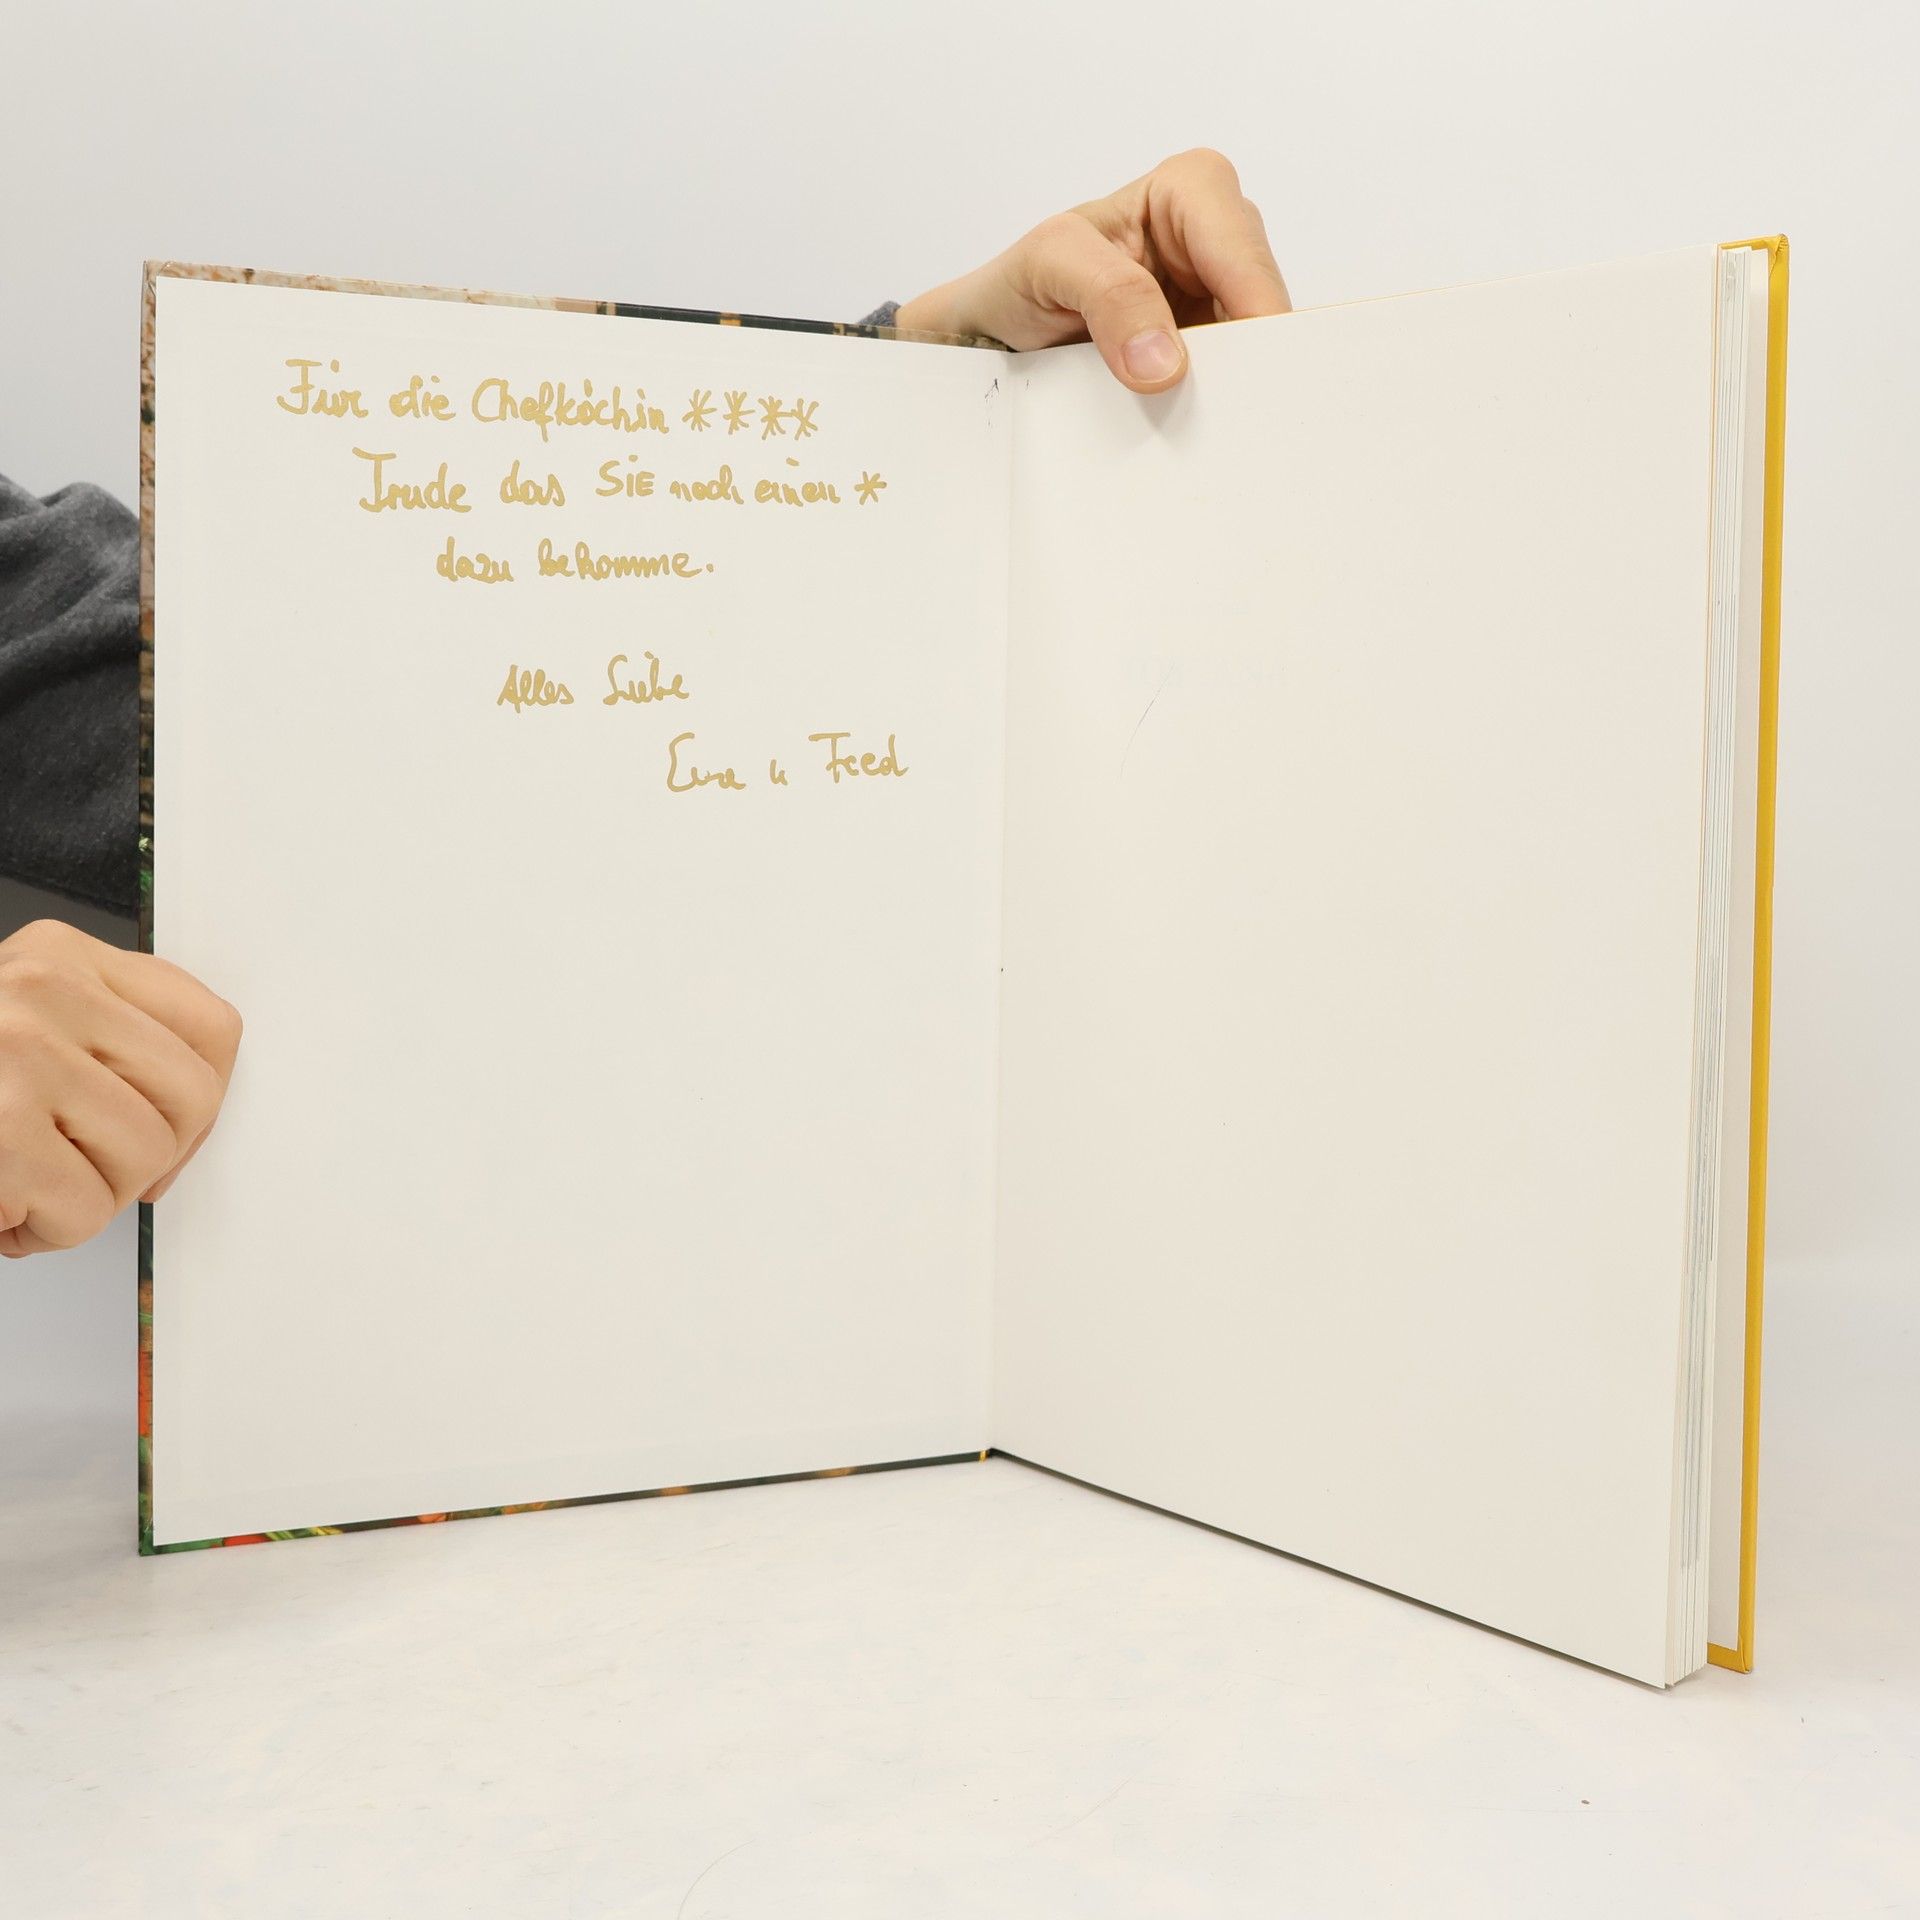 Für die Chefköchin ****
Trude das SIE noch einen *
dazu bekomme.
Alles Liebe
Eva u Fred